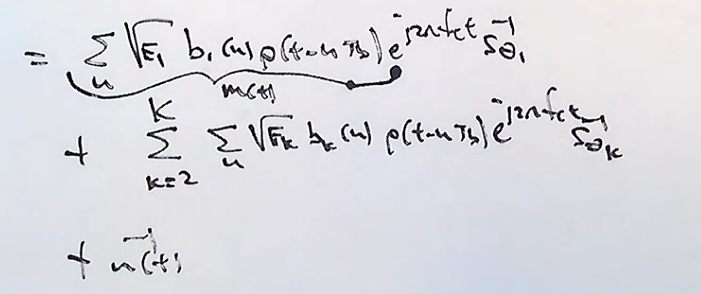 = ∑_n √E₁ b₁(n) p(t-nT_b) e^{j2πf_c t} s⃗_{θ₁}
m(t)
+ ∑_{k=2}^{K} ∑_n √E_k b_k(n) p(t-nT_b) e^{j2πf_c t} s⃗_{θ_k}
+ n⃗(t)